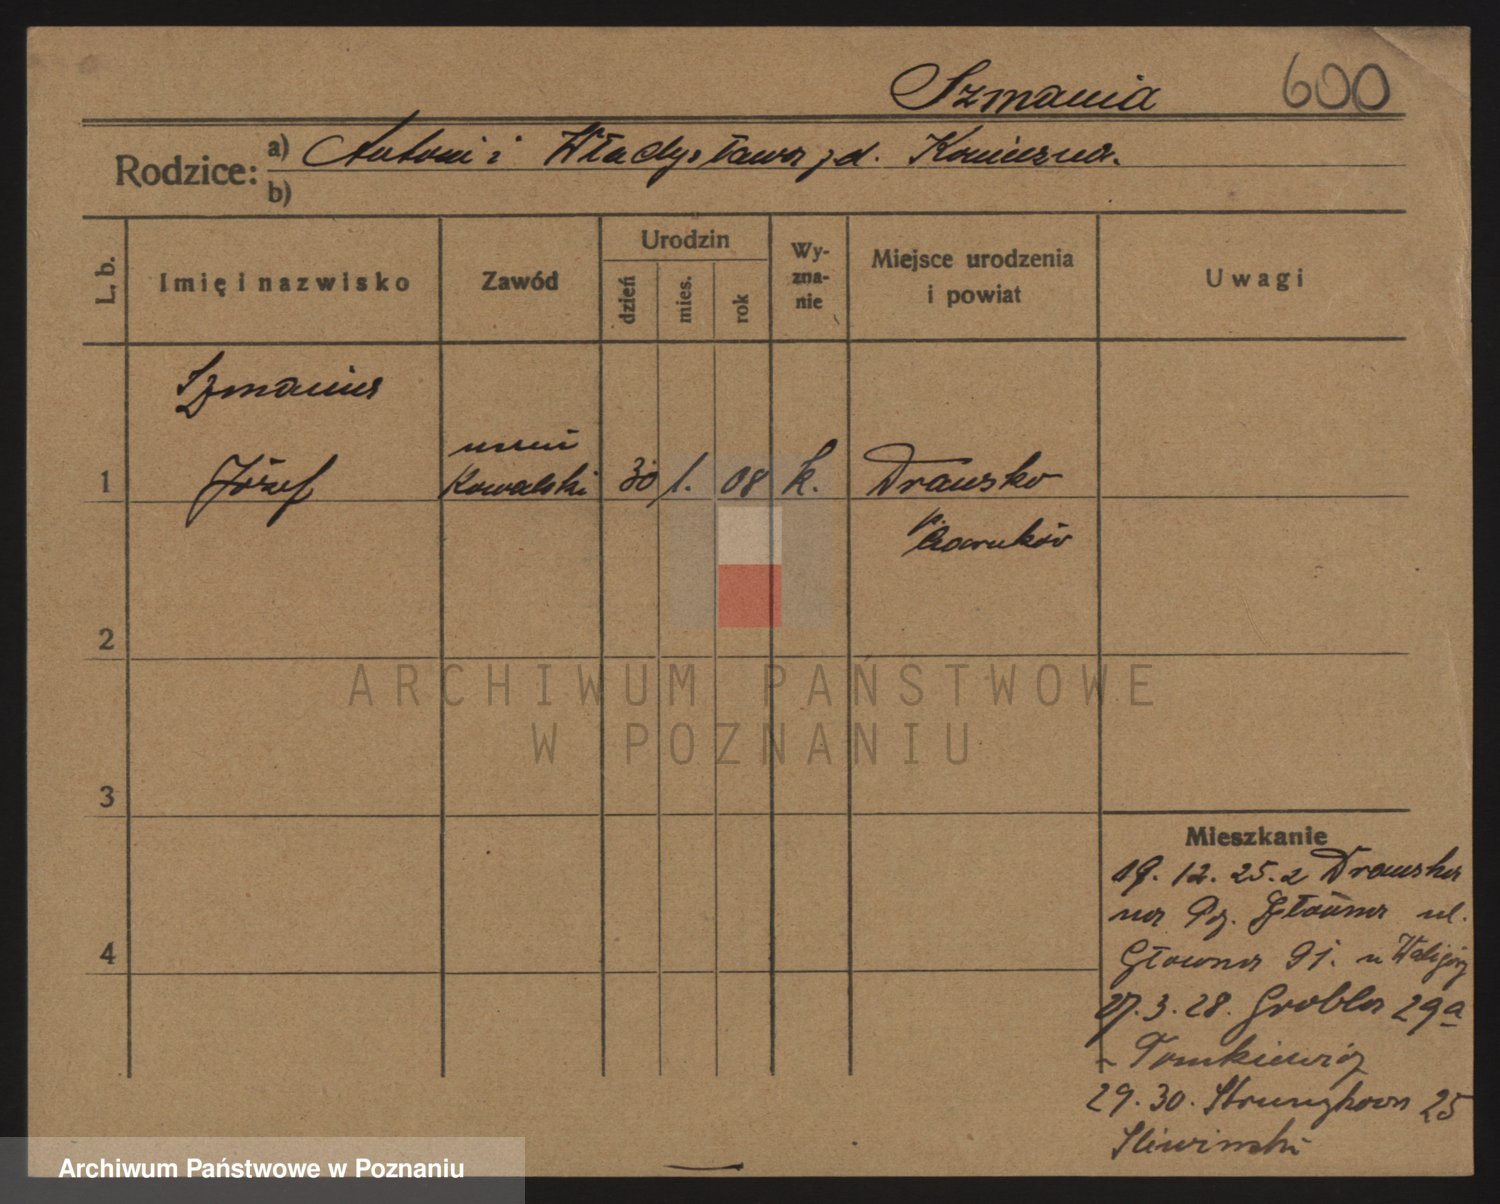 Szmania 600
Rodzice: a) Antoni i Władysława z d. Konieczna.
b)
L. b. Imię i nazwisko Zawód Urodzin dzień mies. rok Wyznanie Miejsce urodzenia i powiat Uwagi
Szmania
uczeń
1 Józef Kowalski 30 1. 08 k. Drawsko
p. Czarnków
2
ARCHIWUM PAŃSTWOWE
W POZNANIU
3
Mieszkanie
19. 12. 25. z Drawska
na Pg. Główna ul.
4 Główna 91. u
27. 3. 28. Grobla 29a
- Tomkiewicz
29. 30. 25
Sliwinski
Archiwum Państwowe w Poznaniu